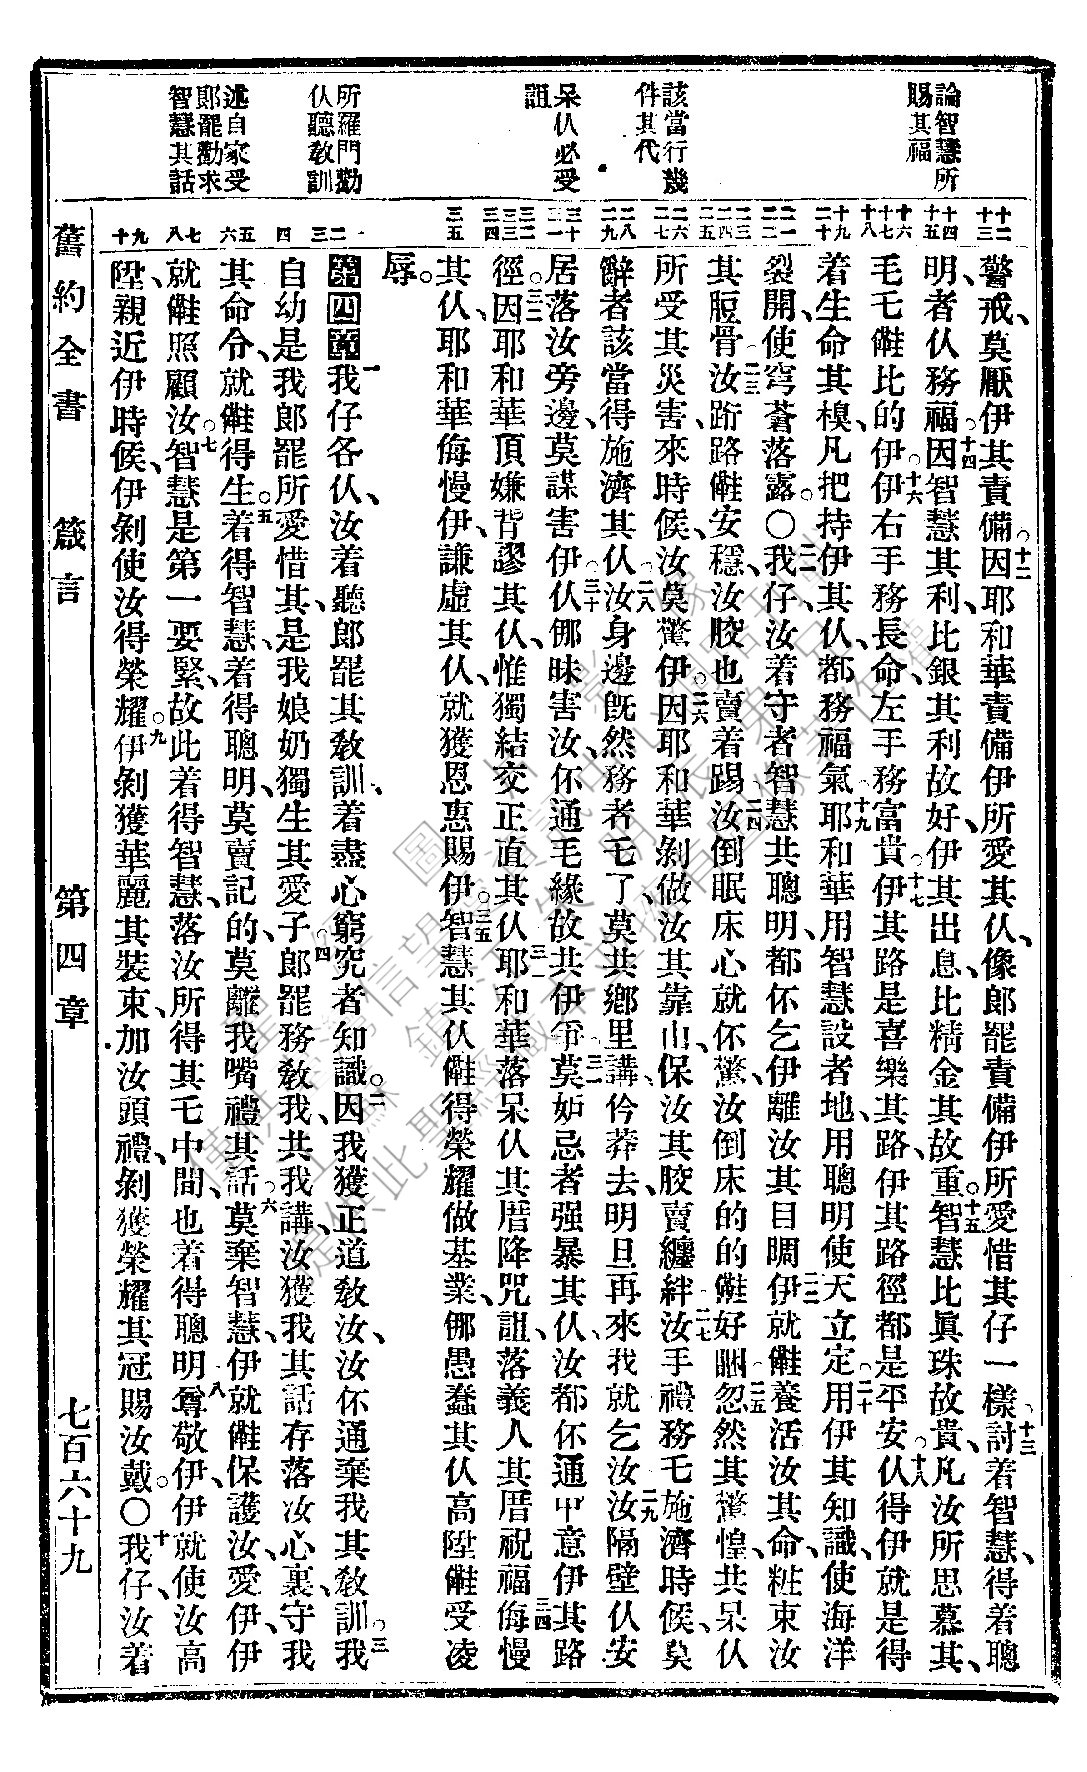 論智慧所
賜其福
該當行幾
件其代
呆仈必受
詛
所羅門勸
仈聽教訓
述自家受
郎罷勸求
智慧其話
十二
十三
十四
十五
十六
十七
十八
十九
二十
二一
二二
二三
二四
二五
二六
二七
二八
二九
三十
三一
三二
三三
三四
三五
一
二
三
四
五
六
七
八
九
十
警戒、莫厭伊其責備。十二因耶和華責備伊所愛其仈、像郎罷責備伊所愛惜其仔一樣。十三討着智慧、得着聰
明者仈務福。十四因智慧其利、比銀其利故好、伊其出息、比精金其故重。十五智慧比眞珠故貴、凡汝所思慕其、
毛乇㑚比的伊。十六伊右手務長命、左手務富貴。十七伊其路是喜樂其路、伊其路徑都是平安。十八仈得伊就是得
着生命其樹、凡把持伊其仈、都務福氣。十九耶和華用智慧設者地、用聰明使天立定。二十用伊其知識、使海洋
裂開、使穹蒼落露。〇二一我仔、汝着守者智慧共聰明、都伓乞伊離汝其目睭。二二伊就㑚養活汝其命、粧束汝
其脰骨。二三汝跡路㑚安穩、汝骹也賣着踢。二四汝倒眠床、心就伓驚、汝倒床的的㑚好睏。二五忽然其驚惶、共呆仈
所受其災害來時候、汝莫驚伊。二六因耶和華剝做汝其靠山、保汝其骹賣纏絆。二七汝手禮務乇施濟時候、莫
辭者該當得施濟其仈。二八汝身邊旣然務者乇了、莫共鄉里講、伱莽去、明旦再來、我就乞汝。二九汝隔壁仈安
居落汝旁邊、莫謀害伊。三十仈㑚昧害汝、伓通毛緣故共伊爭。三一莫妒忌者强暴其仈、汝都伓通甲意伊其路
徑。三二因耶和華頂嫌背謬其仈、惟獨結交正直其仈。三三耶和華落呆仈其厝降咒詛、落義人其厝祝福。三四侮慢
其仈、耶和華侮慢伊、謙虛其仈、就獲恩惠賜伊。三五智慧其仈、㑚得榮耀做基業、㑚愚蠢其仈高陞、㑚受凌
辱。
第四章 一我仔各仈、汝着聽郎罷其教訓、着盡心窮究者知識。二因我獲正道教汝、汝伓通棄我其教訓。三我
自幼是我郎罷所愛惜其、是我娘奶獨生其愛子。四郎罷務教我共我講、汝獲我其話存落汝心裏、守我
其命令、就㑚得生。五着得智慧、着得聰明、莫賣記的、莫離我嘴禮其話。六莫棄智慧、伊就㑚保護汝、愛伊、伊
就㑚照顧汝。七智慧是第一要緊、故此着得智慧、落汝所得其乇中間、也着得聰明。八尊敬伊、伊就使汝高
陞、親近伊時候、伊剝使汝得榮耀。九伊剝獲華麗其裝束、加汝頭禮、剝獲榮耀其冠賜汝戴。〇十我仔、汝着
舊約全書 箴言 第四章 七百六十九